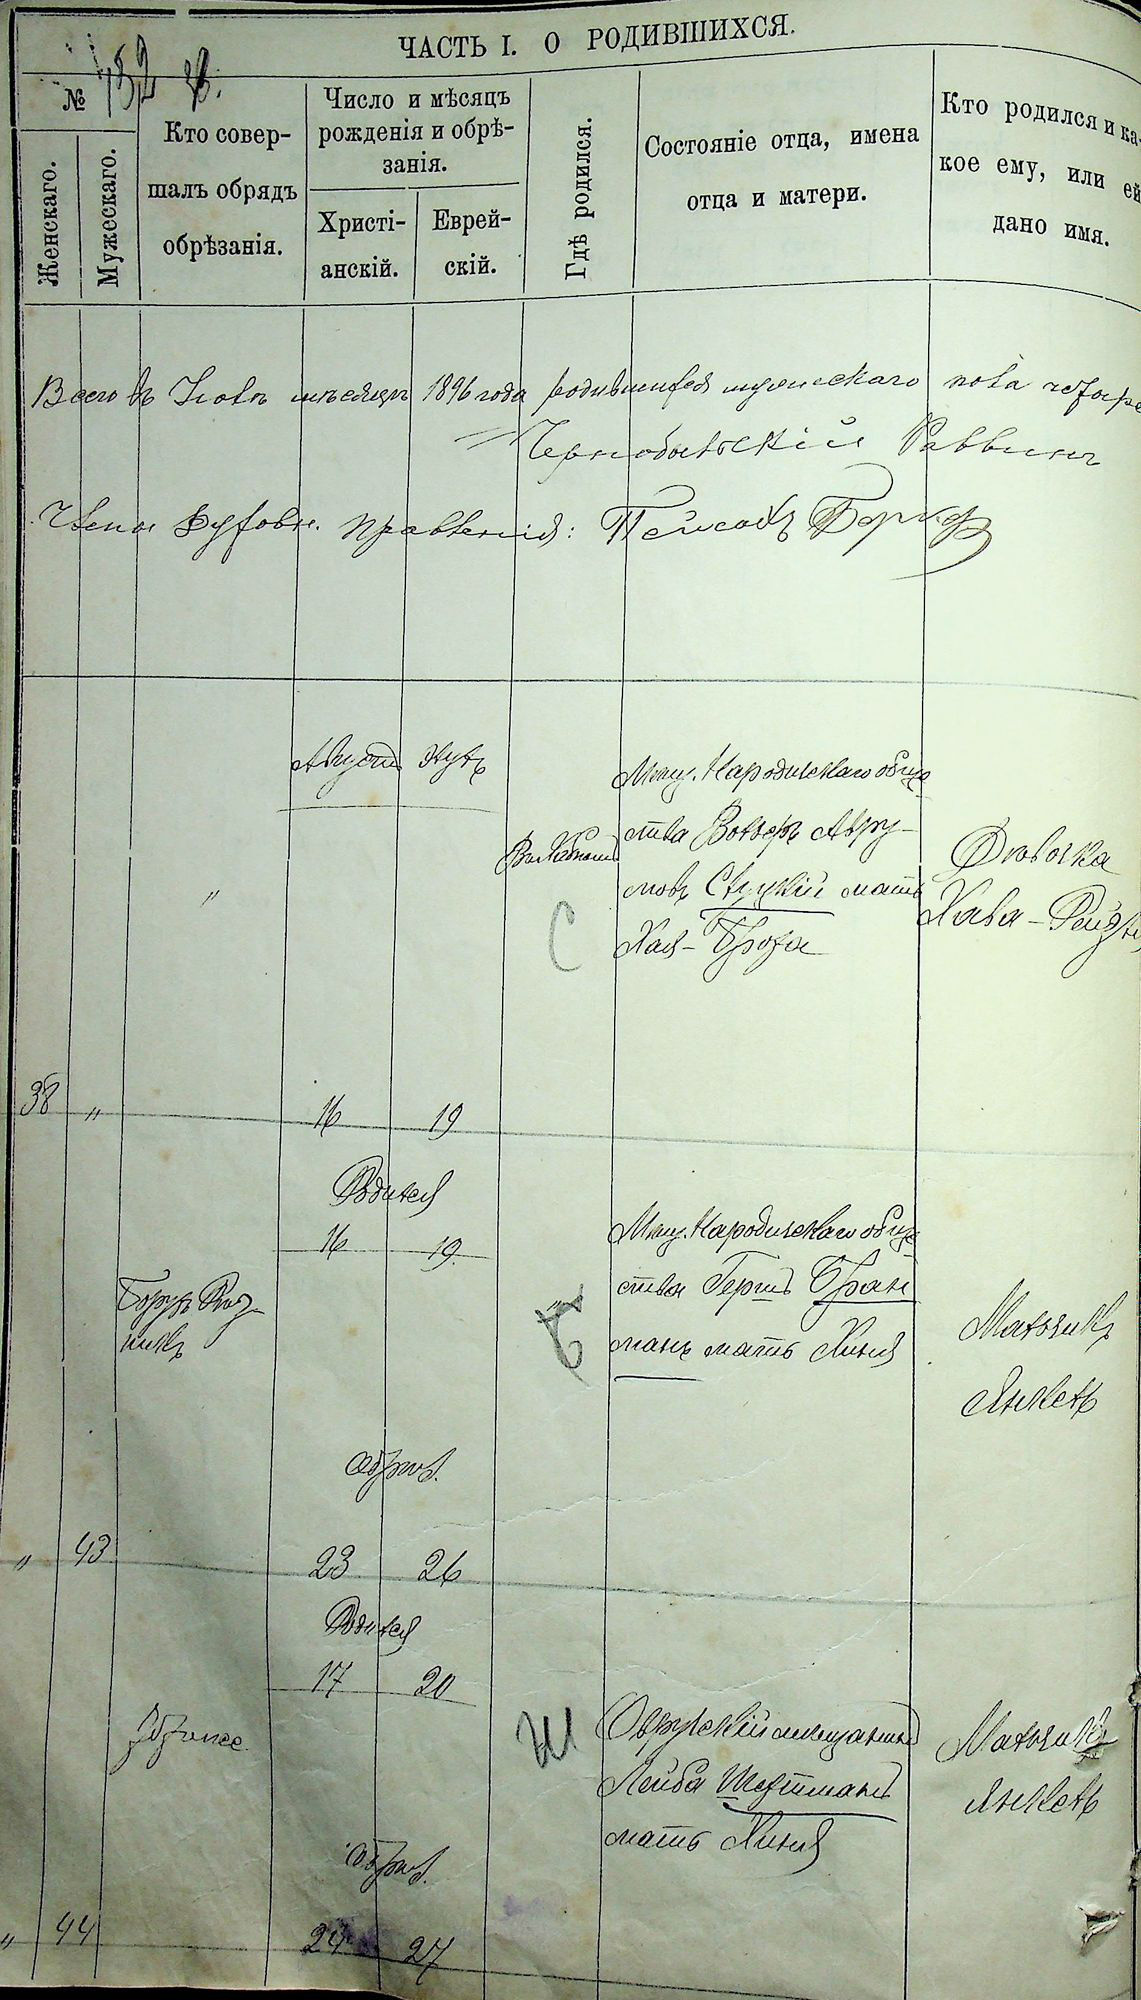 ЧАСТЬ I. О РОДИВШИХСЯ.
152
№
Женскаго.
Мужескаго.
Кто совер-
шалъ обрядъ
обрѣзанія.
Число и мѣсяцъ
рожденія и обрѣ-
занія.
Христі-
анскій.
Еврей-
скій.
Гдѣ родился.
Состояніе отца, имена
отца и матери.
Кто родился и ка-
кое ему, или ей
дано имя.
Всего въ Іюлѣ мѣсяцѣ 1896 года родившихся мужескаго пола четыре
Чернобыльскій Раввинъ
Члены Духовн. Правленія: Пейсахъ
Августъ
"
Мѣщ. Народичскаго обще
ства Вольфъ Авру-
мовъ Слуцкій мать
Хая-Броха
С
Дѣвочка
Хава-Рейзя
38 " 16 19
Родился
16 19
Борухъ Рѣз
никъ
"
Мѣщ. Народичскаго обще
ства Гершъ Фран
манъ мать Хиня
Мальчикъ
Янкель
Обрѣз.
" 43 23 26
Родился
17 20
Ш
Овручскій мещанинъ
Лейба Шехтманъ
мать Хиня
Мальчикъ
Янкель
Обрѣз.
" 44 24 27